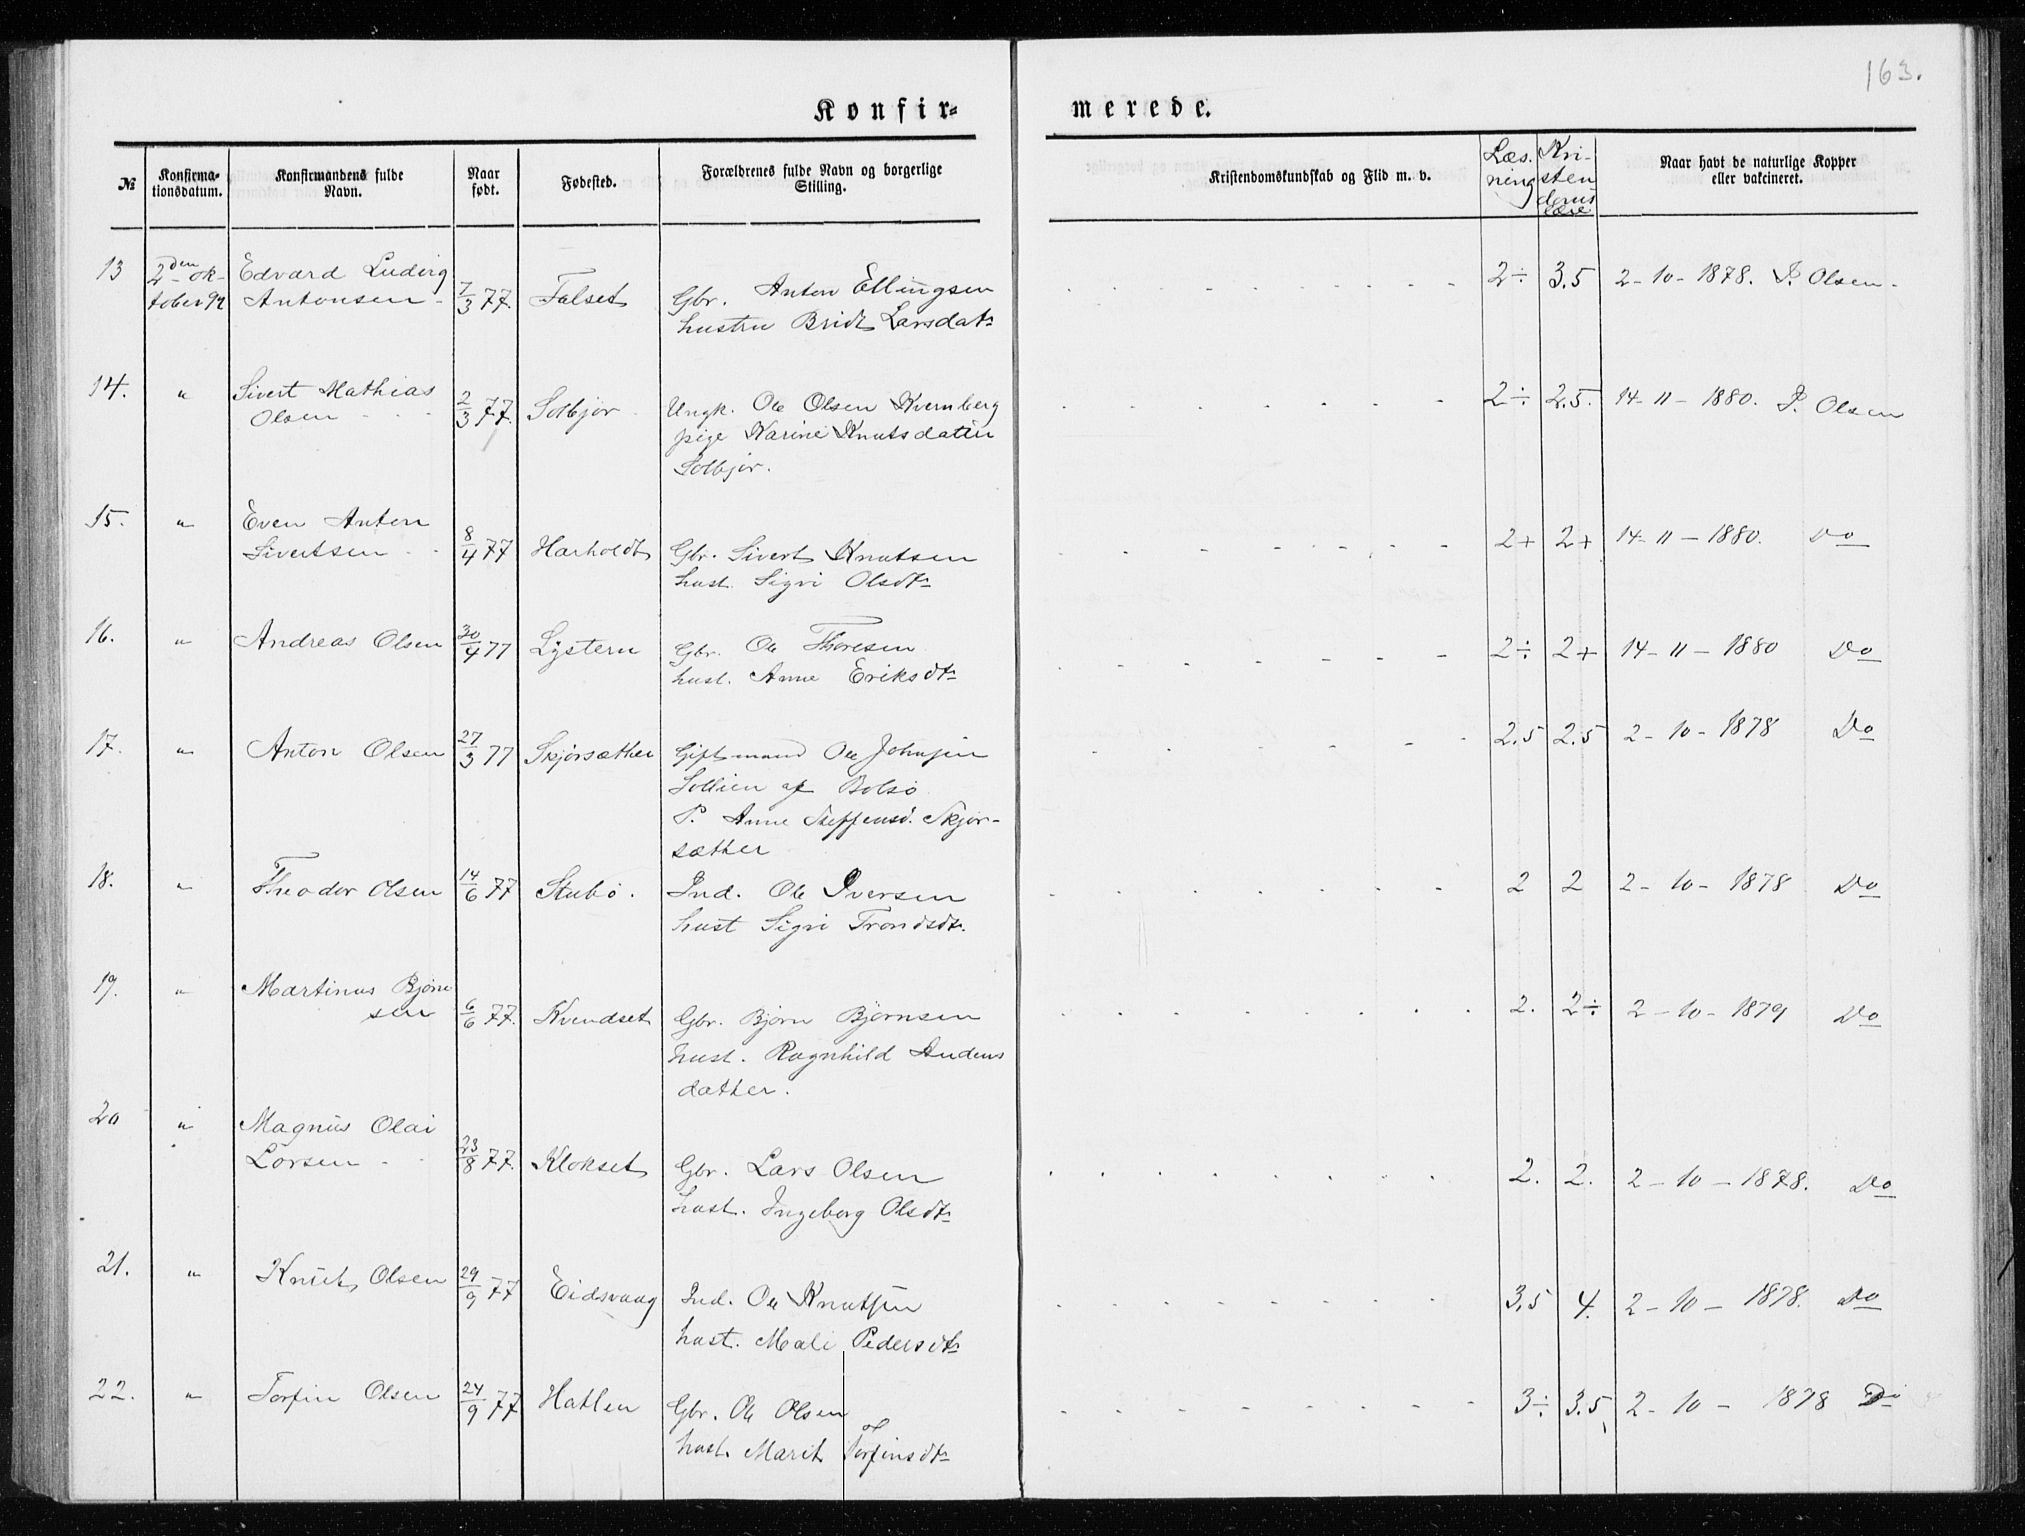 163.
Konfir-
merede.
№
Konfirma-
tionsdatum.
Konfirmandens fulde
Navn.
Naar
født.
Fødested.
Forældrenes fulde Navn og borgerlige
Stilling.
Kristendomskundskab og Flid m. v.
Læs.
ning
Kri-
sten-
doms
lære
Naar havt de naturlige Kopper
eller vakcineret.
13 2den Ok- Edvard Ludvig
tober 92 Antonsen - 7/3 77. Falset Gbr. Anton Ellingsen 2÷ 3.5 2-10-1878. P. Olsen.
hustru Bridt Larsdatr
14. " Sivert Mathias
Olsen 2/3 77. Solbjør Ungk. Ole Olsen Kvernberg 2÷ 2.5. 14-11-1880. P. Olsen
pige Karine Knutsdatter
Solbjør.
15. " Even Anton
Sivertsen 8/4 77 Harholdt Gbr. Sivert Knutsen 2+ 2+ 14-11-1880. Do
hust. Sigri Olsdtr
16. " Andreas Olsen 30/4 77 Lystern Gbr. Ole Thoresen 2÷ 2+ 14-11-1880 Do
hust. Anne Eriksdtr
17. " Anton Olsen 27/3 77 Skjørsæther Gift mand Ole Johnsen 2.5 2.5 2-10-1878 Do
Sollien af Bolsø
P. Anne Steffensd. Skjør-
sæther
18. " Theodor Olsen 14/6 77 Stubø. Ind. Ole Iversen 2 2 2-10-1878 Do
hust Sigri Trondsdtr.
19. " Martinus Bjørn
sen 6/6 77. Kvendset Gbr. Bjørn Bjørnsen 2. 2÷ 2-10-1879 Do
hust. Ragnhild Audens
datter.
20 " Magnus Olai
Larsen 23/8 77. Klokset Gbr. Lars Olsen 2. 2. 2-10-1878. Do
hust. Ingeborg Olsdtr
21. " Knut Olsen 29/9 77 Eidsvaag Ind. Ole Knutsen 3,5 4. 2-10-1878. Do
hust. Mali Pedersdtr
22. " Torfin Olsen 24/9 77 Hatlen Gbr. Ole Olsen 3÷ 3.5 2-10-1878 Do
hust. Marit Torfinsdtr